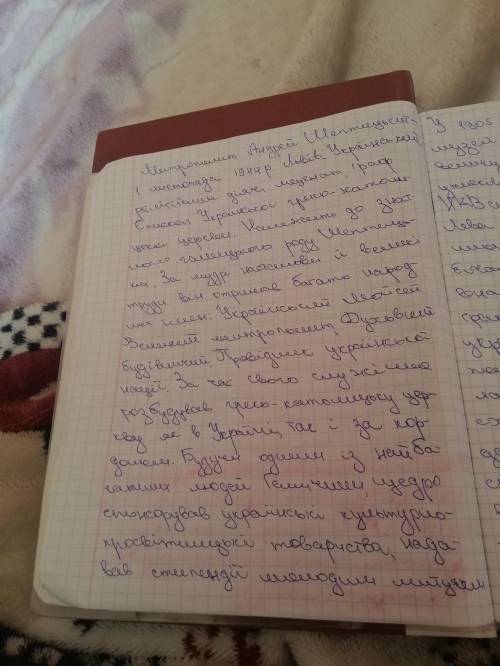 Митрополит Андрей Шептицький-
1 листопада 1944р Львів. Український
релігійний діяч, меценат, граф
Єпископ Української греко-католи
цької церкви. Належить до знат
ного галицького роду Шептиць
ких. За мудрі настанови й великі
труди він отримав багато народ
них імен. Український Мойсей
Великий митрополит, Духовний
будівничий. Провідник української
нації. За час свого служіння
розбудував греко-католицьку цер
кву як в Україні, так і за кор
доном. Будучи одним із найба
гатших людей Галичини, щедро
спонсорував українські культурно-
просвітницькі товариства, нада
вав стипендії молодим митцям
У 1905
музей